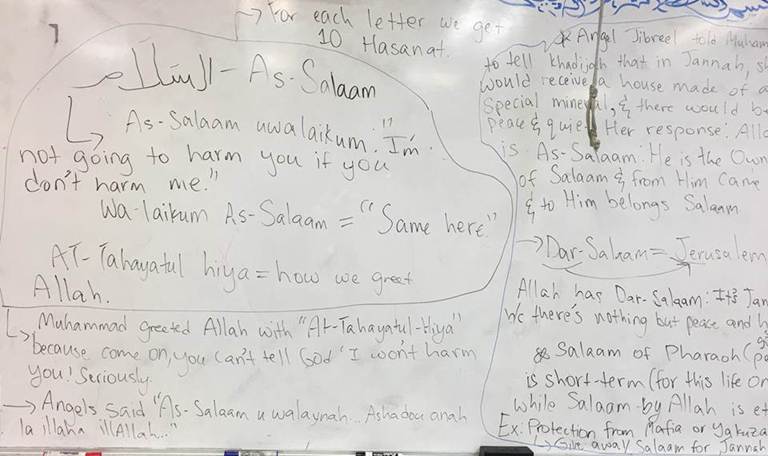 → For each letter we get
10 Hasanat.
السلام - As-Salaam
As-Salaam uwalaikum: "I'm
not going to harm you if you
don't harm me."
Wa-laikum As-Salaam = "Same here"
AT-Tahayatul hiya = how we greet
Allah.
Muhammad greeted Allah with "At-Tahayatul-Hiya"
because come on, you can't tell God 'I won't harm
you! Seriously.
→ Angels said "As-Salaam u walaynah... Ashadou anah
la illaha ill Allah..."
* Angel Jibreel told Muham
to tell Khadijah that in Jannah, sh
would receive a house made of a
Special mineral, & there would b
peace & quiet. Her response: Alla
is As-Salaam: He is the Own
of Salaam & from Him came
& to Him belongs Salaam
→ Dar-Salaam = Jerusalem
Allah has Dar-Salaam: It's Jan
b/c there's nothing but peace and h
& Salaam of Pharaoh (
is short-term (for this life on
while Salaam by Allah is et
Ex: Protection from Mafia or Yakuza
↳ Give away Salaam for Jannah